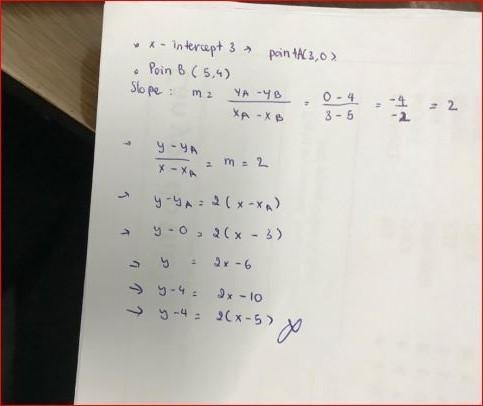 • x - intercept 3 → point A(3,0)
• Poin B (5,4)
Slope : m = yA - yB / xA - xB = 0 - 4 / 3 - 5 = -4 / -2 = 2
→ y - yA / x - xA = m = 2
→ y - yA = 2(x - xA)
→ y - 0 = 2(x - 3)
→ y = 2x - 6
→ y - 4 = 2x - 10
→ y - 4 = 2(x - 5)